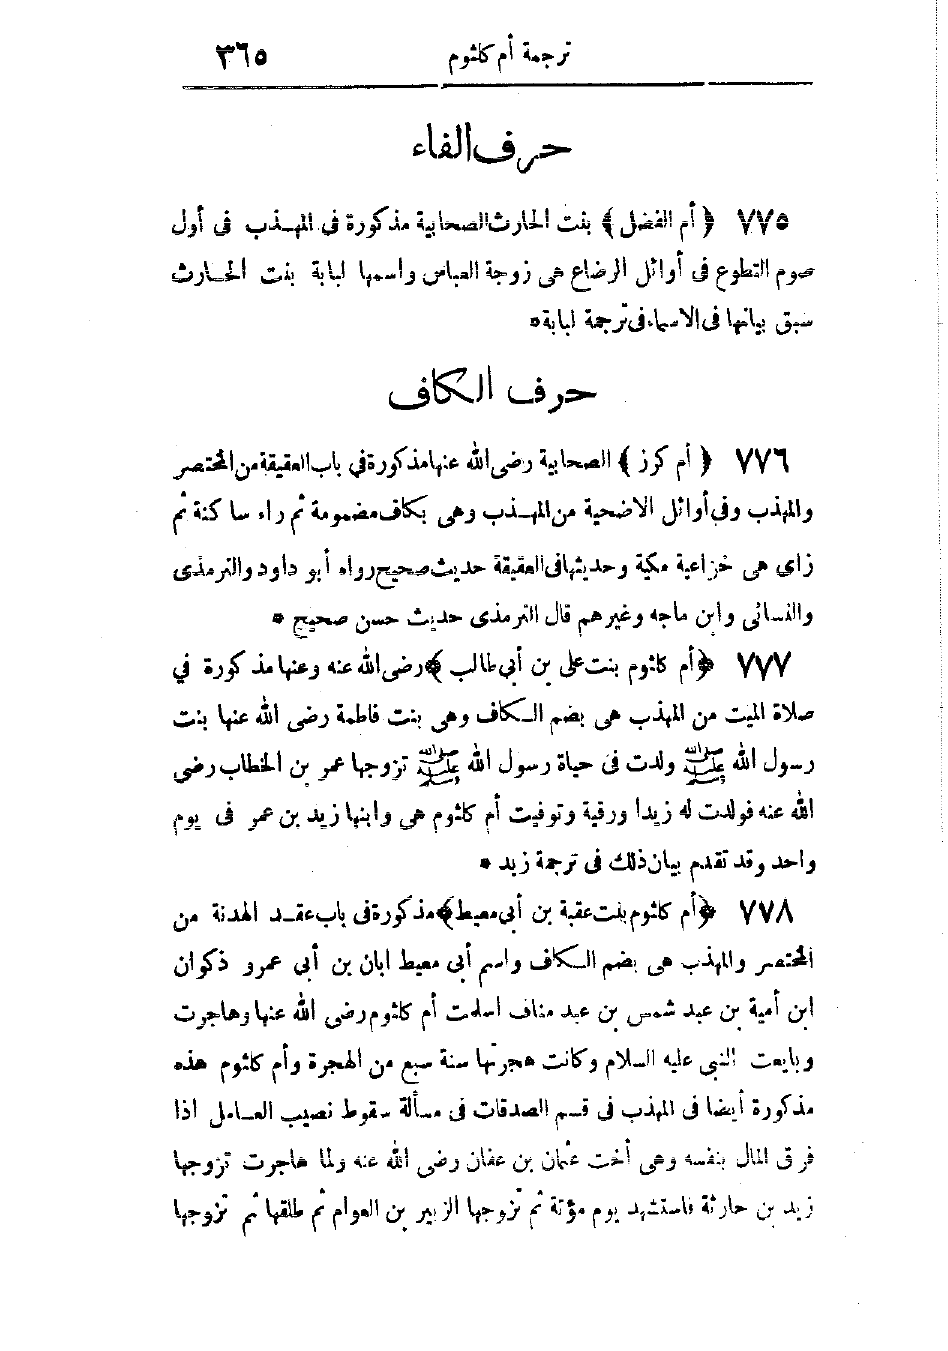 ترجمة أم كلثوم ٣٦٥
حرف الفاء
٧٧٥ ﴿أم الفضل﴾ بنت الحارث الصحابية مذكورة فى المهذب فى أول
صوم التطوع فى أوائل الرضاع هى زوجة العباس واسمها لبابة بنت الحارث
سبق بيانها فى الاسماء فى ترجمة لبابة *
حرف الكاف
٧٧٦ ﴿أم كرز﴾ الصحابية رضى الله عنها مذكورة في باب العقيقة من المختصر
والمهذب وفى أوائل الاضحية من المهذب وهى بكاف مضمومة ثم راء ساكنة ثم
زاى هى خزاعية مكية وحديثها فى العقيقة حديث صحيح رواه أبو داود والترمذى
والنسائى وابن ماجه وغيرهم قال الترمذى حديث حسن صحيح *
٧٧٧ ﴿أم كلثوم بنت على بن أبي طالب﴾ رضى الله عنه وعنها مذكورة في
صلاة الميت من المهذب هى بضم الكاف وهى بنت فاطمة رضى الله عنها بنت
رسول الله ﷺ ولدت فى حياة رسول الله ﷺ تزوجها عمر بن الخطاب رضى
الله عنه فولدت له زيدا ورقية وتوفيت أم كلثوم هي وابنها زيد بن عمر فى يوم
واحد وقد تقدم بيان ذلك فى ترجمة زيد *
٧٧٨ ﴿أم كلثوم بنت عقبة بن أبي معيط﴾ مذكورة فى باب عقد الهدنة من
المختصر والمهذب هى بضم الكاف واسم أبي معيط ابان بن أبي عمرو ذكوان
ابن أمية بن عبد شمس بن عبد مناف اسلمت أم كلثوم رضى الله عنها وهاجرت
وبايعت النبى عليه السلام وكانت هجرتها سنة سبع من الهجرة وأم كلثوم هذه
مذكورة أيضا فى المهذب فى قسم الصدقات فى مسألة سقوط نصيب العامل اذا
فرق المال بنفسه وهى أخت عثمان بن عفان رضى الله عنه ولما هاجرت تزوجها
زيد بن حارثة فاستشهد يوم مؤتة ثم تزوجها الزبير بن العوام ثم طلقها ثم تزوجها